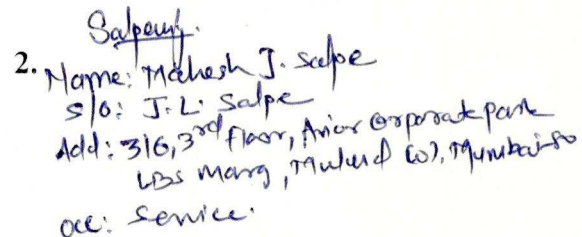 2.
Name: Mahesh J. Salpe
S/o: J.L. Salpe
Add: 316, 3rd Floor, Avior Corporate park
LBS Marg, Mulund (W), Mumbai-80
Occ: Service.